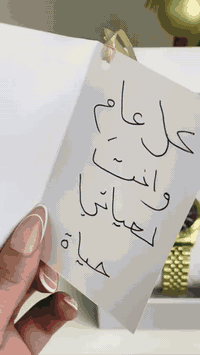 كل عام
وانت
بحياتي
حياة